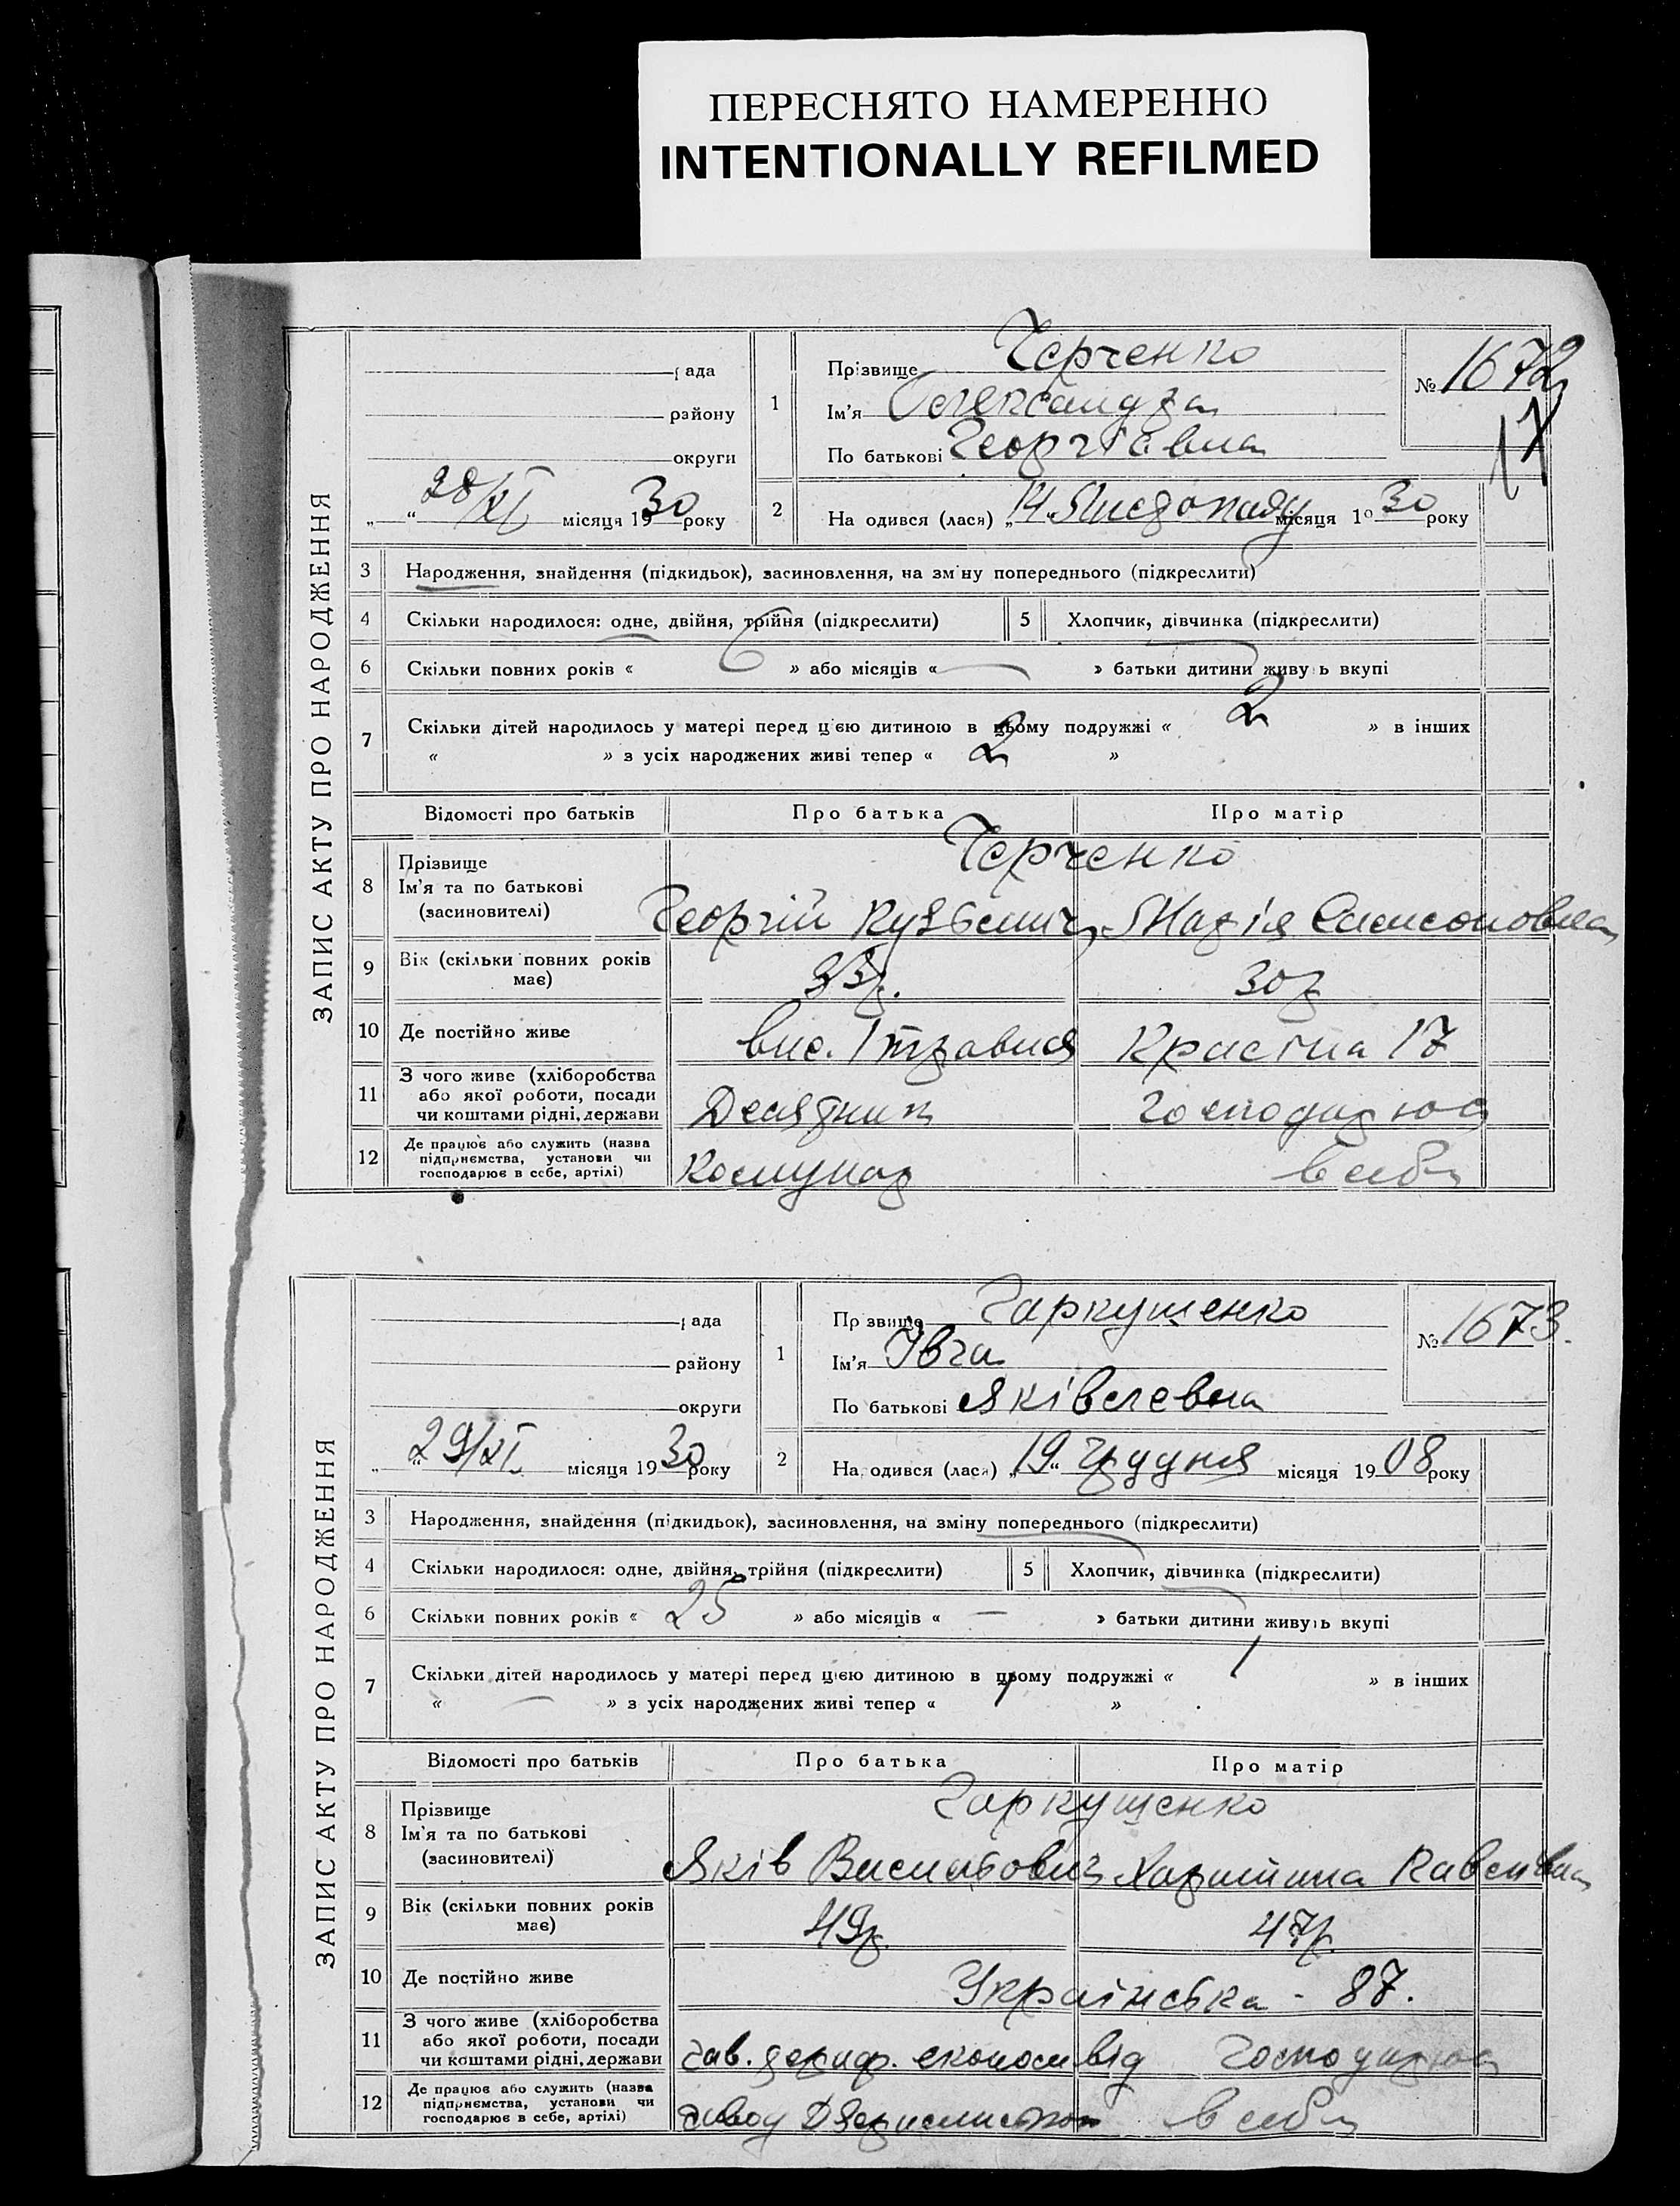 ПЕРЕСНЯТО НАМЕРЕННО
INTENTIONALLY REFILMED
ЗАПИС АКТУ ПРО НАРОДЖЕННЯ
рада
району
округи
„ “ 28/XI місяця 1930 року
1
Прізвище Черченко
Ім'я Олександра
По батькові Георгієвна
№ 1672
17
2
На одився (лася) „14“ Листопаду місяця 1930 року
3 Народження, знайдення (підкидьок), засиновлення, на зм ну попереднього (підкреслити)
4 Скільки народилося: одне, двійня, трійня (підкреслити) 5 Хлопчик, дівчинка (підкреслити)
6 Скільки повних років « 6 » або місяців « — » батьки дитини живу ь вкупі
7 Скільки дітей народилось у матері перед цією дитиною в цьому подружжі « 2 » в інших
« » з усіх народжених живі тепер « 2 »
Відомості про батьків Про батька Про матір
8 Прізвище Черченко
Ім'я та по батькові
(засиновителі) Георгій Кузьмич Надія Самсоновна
9 Вік (скільки повних років має) 33р. 30р
10 Де постійно живе вис. 1 травня Красіна 17
11 З чого живе (хліборобства або якої роботи, посади чи коштами рідні, держави Десятник господарює
12 Де працює або служить (назва підприємства, установи чи господарює в себе, артілі) Комунар в себе
ЗАПИС АКТУ ПРО НАРОДЖЕННЯ
рада
району
округи
„ “ 29/XI місяця 1930 року
1
Пр звище Гаркушенко
Ім'я Івга
По батькові Яківлевна
№ 1673.
2
На одився (лася) „19“ грудня місяця 1908 року
3 Народження, знайдення (підкидьок), засиновлення, на зміну попереднього (підкреслити)
4 Скільки народилося: одне, двійня, трійня (підкреслити) 5 Хлопчик, дівчинка (підкреслити)
6 Скільки повних років « 25 » або місяців « — » батьки дитини живуть вкупі
7 Скільки дітей народилось у матері перед цією дитиною в цьому подружжі « 1 » в інших
« — » з усіх народжених живі тепер « 1 »
Відомості про батьків Про батька Про матір
8 Прізвище Гаркушенко
Ім'я та по батькові
(засиновителі) Яків Васильович Харитина
9 Вік (скільки повних років має) 49р. 47р.
10 Де постійно живе Українська - 87.
11 З чого живе (хліборобства або якої роботи, посади чи коштами рідні, держави зав. економ від господарює
12 Де працює або служить (назва підприємства, установи чи господарює в себе, артілі) завод в себе